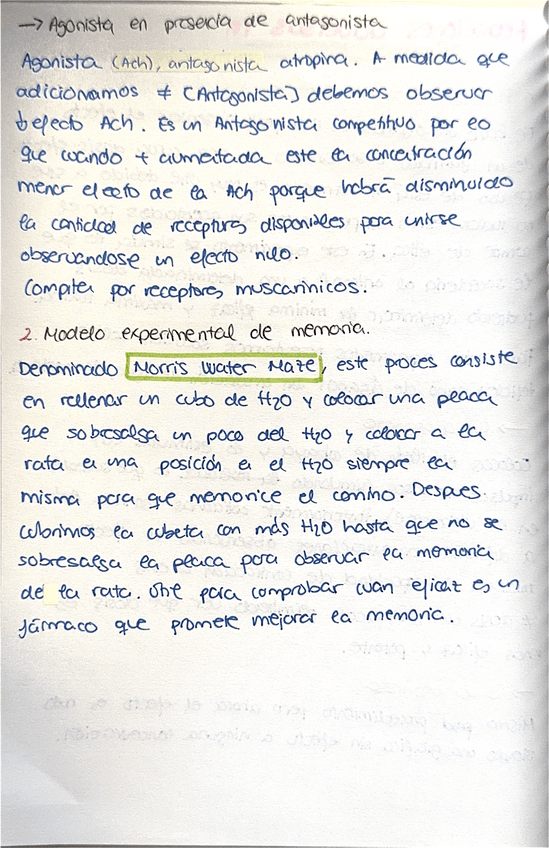 → Agonista en presencia de antagonista
Agonista (Ach), antagonista atropina. A medida que
adicionamos ≠ [Antagonista] debemos observar
↓ efecto Ach. Es un Antagonista competitivo por eo
que cuando + aumentada este la concentración
menor el ecto de la Ach porque habrá disminuido
la cantidad de receptores disponibles para unirse
observandose un efecto nulo.
Compiten por receptores muscarínicos.
2. Modelo experimental de memoria.
Denominado Morris Water Maze, este proces consiste
en rellenar un cubo de H2O y colocar una placa
que sobresalga un poco del H2O y colocar a la
rata en una posición en el H2O siempre la
misma para que memorice el camino. Despues
cubrimos la cubeta con más H2O hasta que no se
sobresalga la placa para observar la memoria
de la rata. Sirve para comprobar cuan eficaz es un
fármaco que promete mejorar la memoria.